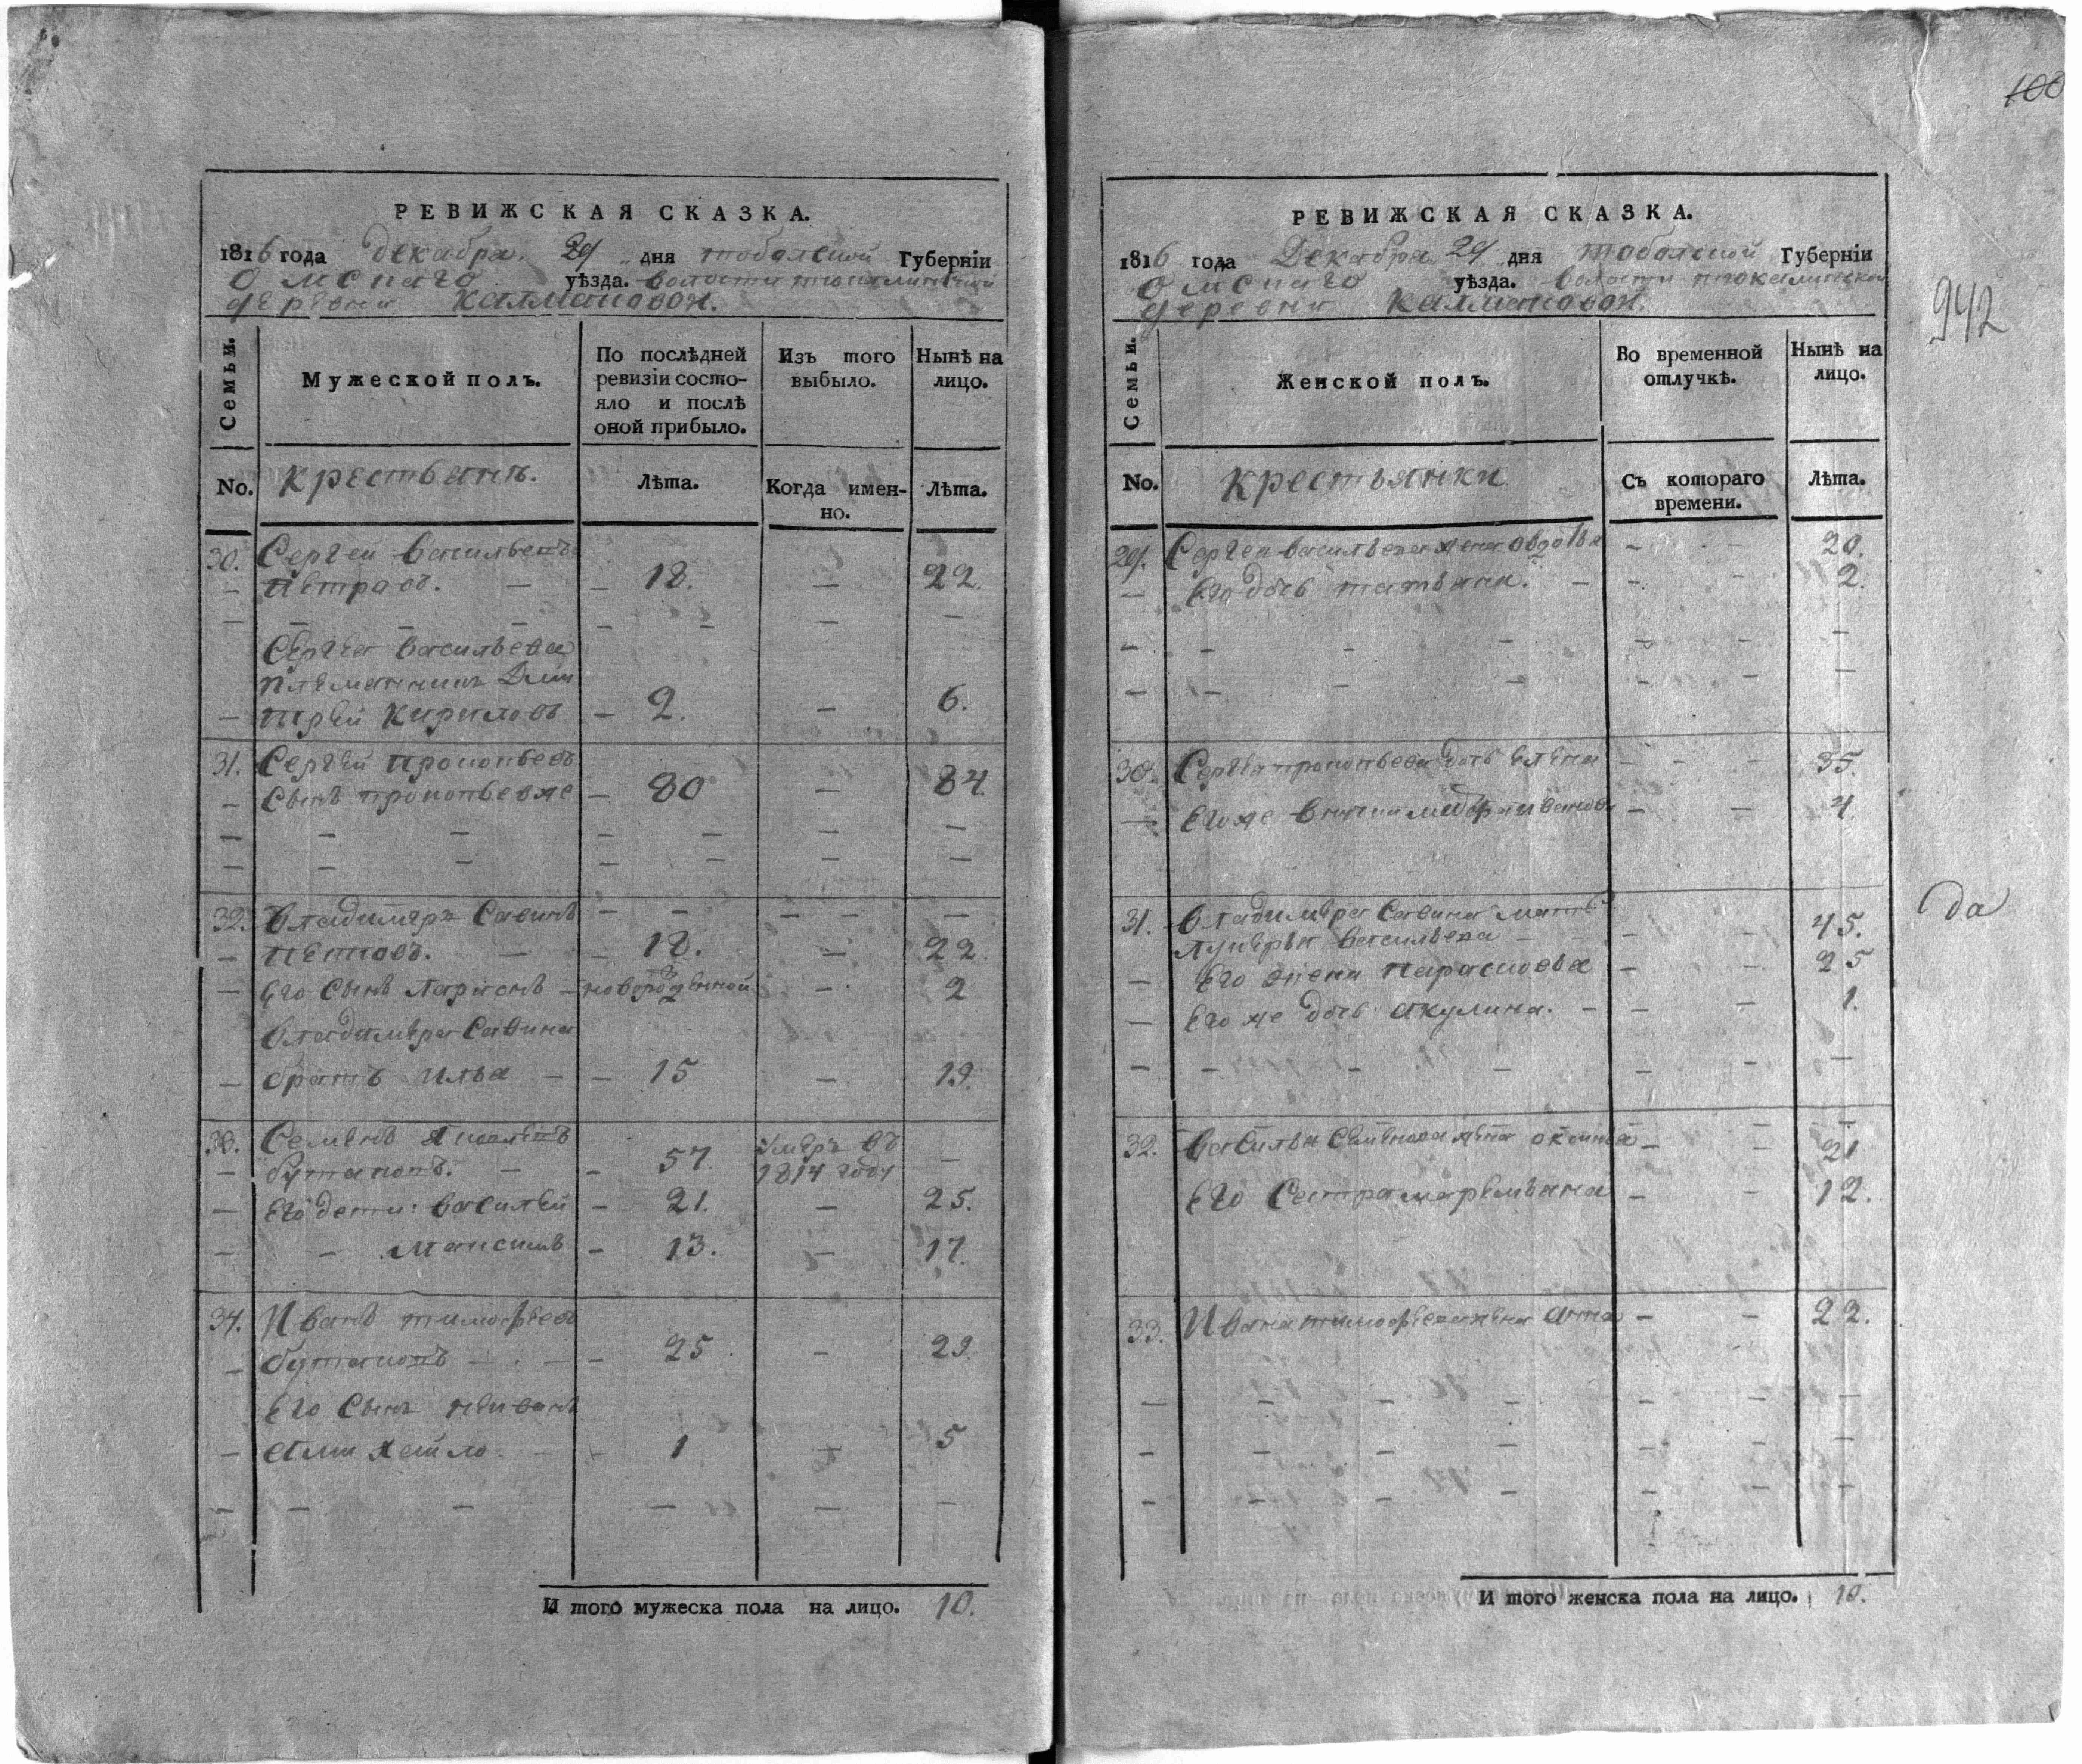 РЕВИЖСКАЯ СКАЗКА.
1816 года декабря 29 дня тобольской Губерніи
Омскаго уѣзда. волости тюкалинской
деревни Калмаковой.
Семьи.
Мужеской полъ.
По послѣдней ревизіи состо-
яло и послѣ
оной прибыло.
Изъ того
выбыло.
Нынѣ на
лицо.
No. крестьянъ.
Лѣта.
Когда имен-
но.
Лѣта.
30. Сергей васильевъ
петровъ. — — 18. — 22.
Сергея васильева
племянникъ Дми
трей Кириловъ — 2. — 6.
31. Сергей прокопьевъ
сынъ прокопьевже — 80 — 84.
32. владимеръ Савинъ
— 18. — 22
Его сынъ Ларионъ — новорожденной — 2
владимера Савина
братъ Илья — — 15 — 19.
33. Семенъ
бутаковъ. — — 57. умеръ въ
1814 году —
Его дети: василей — 21. — 25.
— максимъ — 13. — 17.
34. Иванъ тимофеевъ
бутаковъ — 25. — 29.
Его сынъ
— 1 — 5
И того мужеска пола на лицо. 10.
100
РЕВИЖСКАЯ СКАЗКА.
1816 года Декабря 29 дня тобольской Губерніи
Омскаго уѣзда. волости тюкалинской
деревни Калмаковой.
942
Семьи.
Женской полъ.
Во временной
отлучкѣ.
Нынѣ на
лицо.
No. крестьянки
Съ котораго
времени.
Лѣта.
29. Сергея васильева жена овдотья — — 20.
Его дочь татьяна. — — 2.
30. Сергея прокопьева дочь елена — — 35.
Егоже внучка — — 4.
31. владимера Савина мать
лукерья васильева — — 45.
да
Его жена парасковья — — 25
Егоже дочь акулина. — — 1.
32. василья семенова жена — — 21
Его сестра маремьяна — — 12.
33. Ивана тимофеева жена анна — — 22.
И того женска пола на лицо. 10.